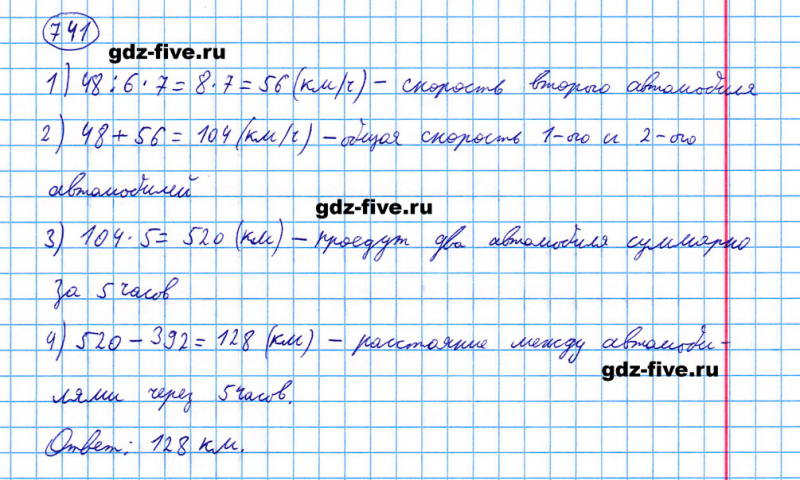 741
gdz-five.ru
1) 48 : 6 · 7 = 8 · 7 = 56 (км/ч) – скорость второго автомобиля
2) 48 + 56 = 104 (км/ч) – общая скорость 1-ого и 2-ого
автомобилей
gdz-five.ru
3) 104 · 5 = 520 (км) – проедут два автомобиля суммарно
за 5 часов
4) 520 – 392 = 128 (км) – расстояние между автомоби-
gdz-five.ru
лями через 5 часов.
Ответ: 128 км.